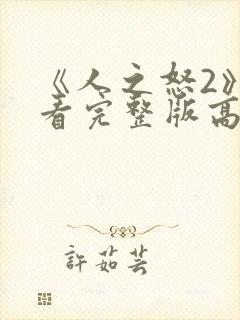 《人之怒2》
看完整版高
許茹芸